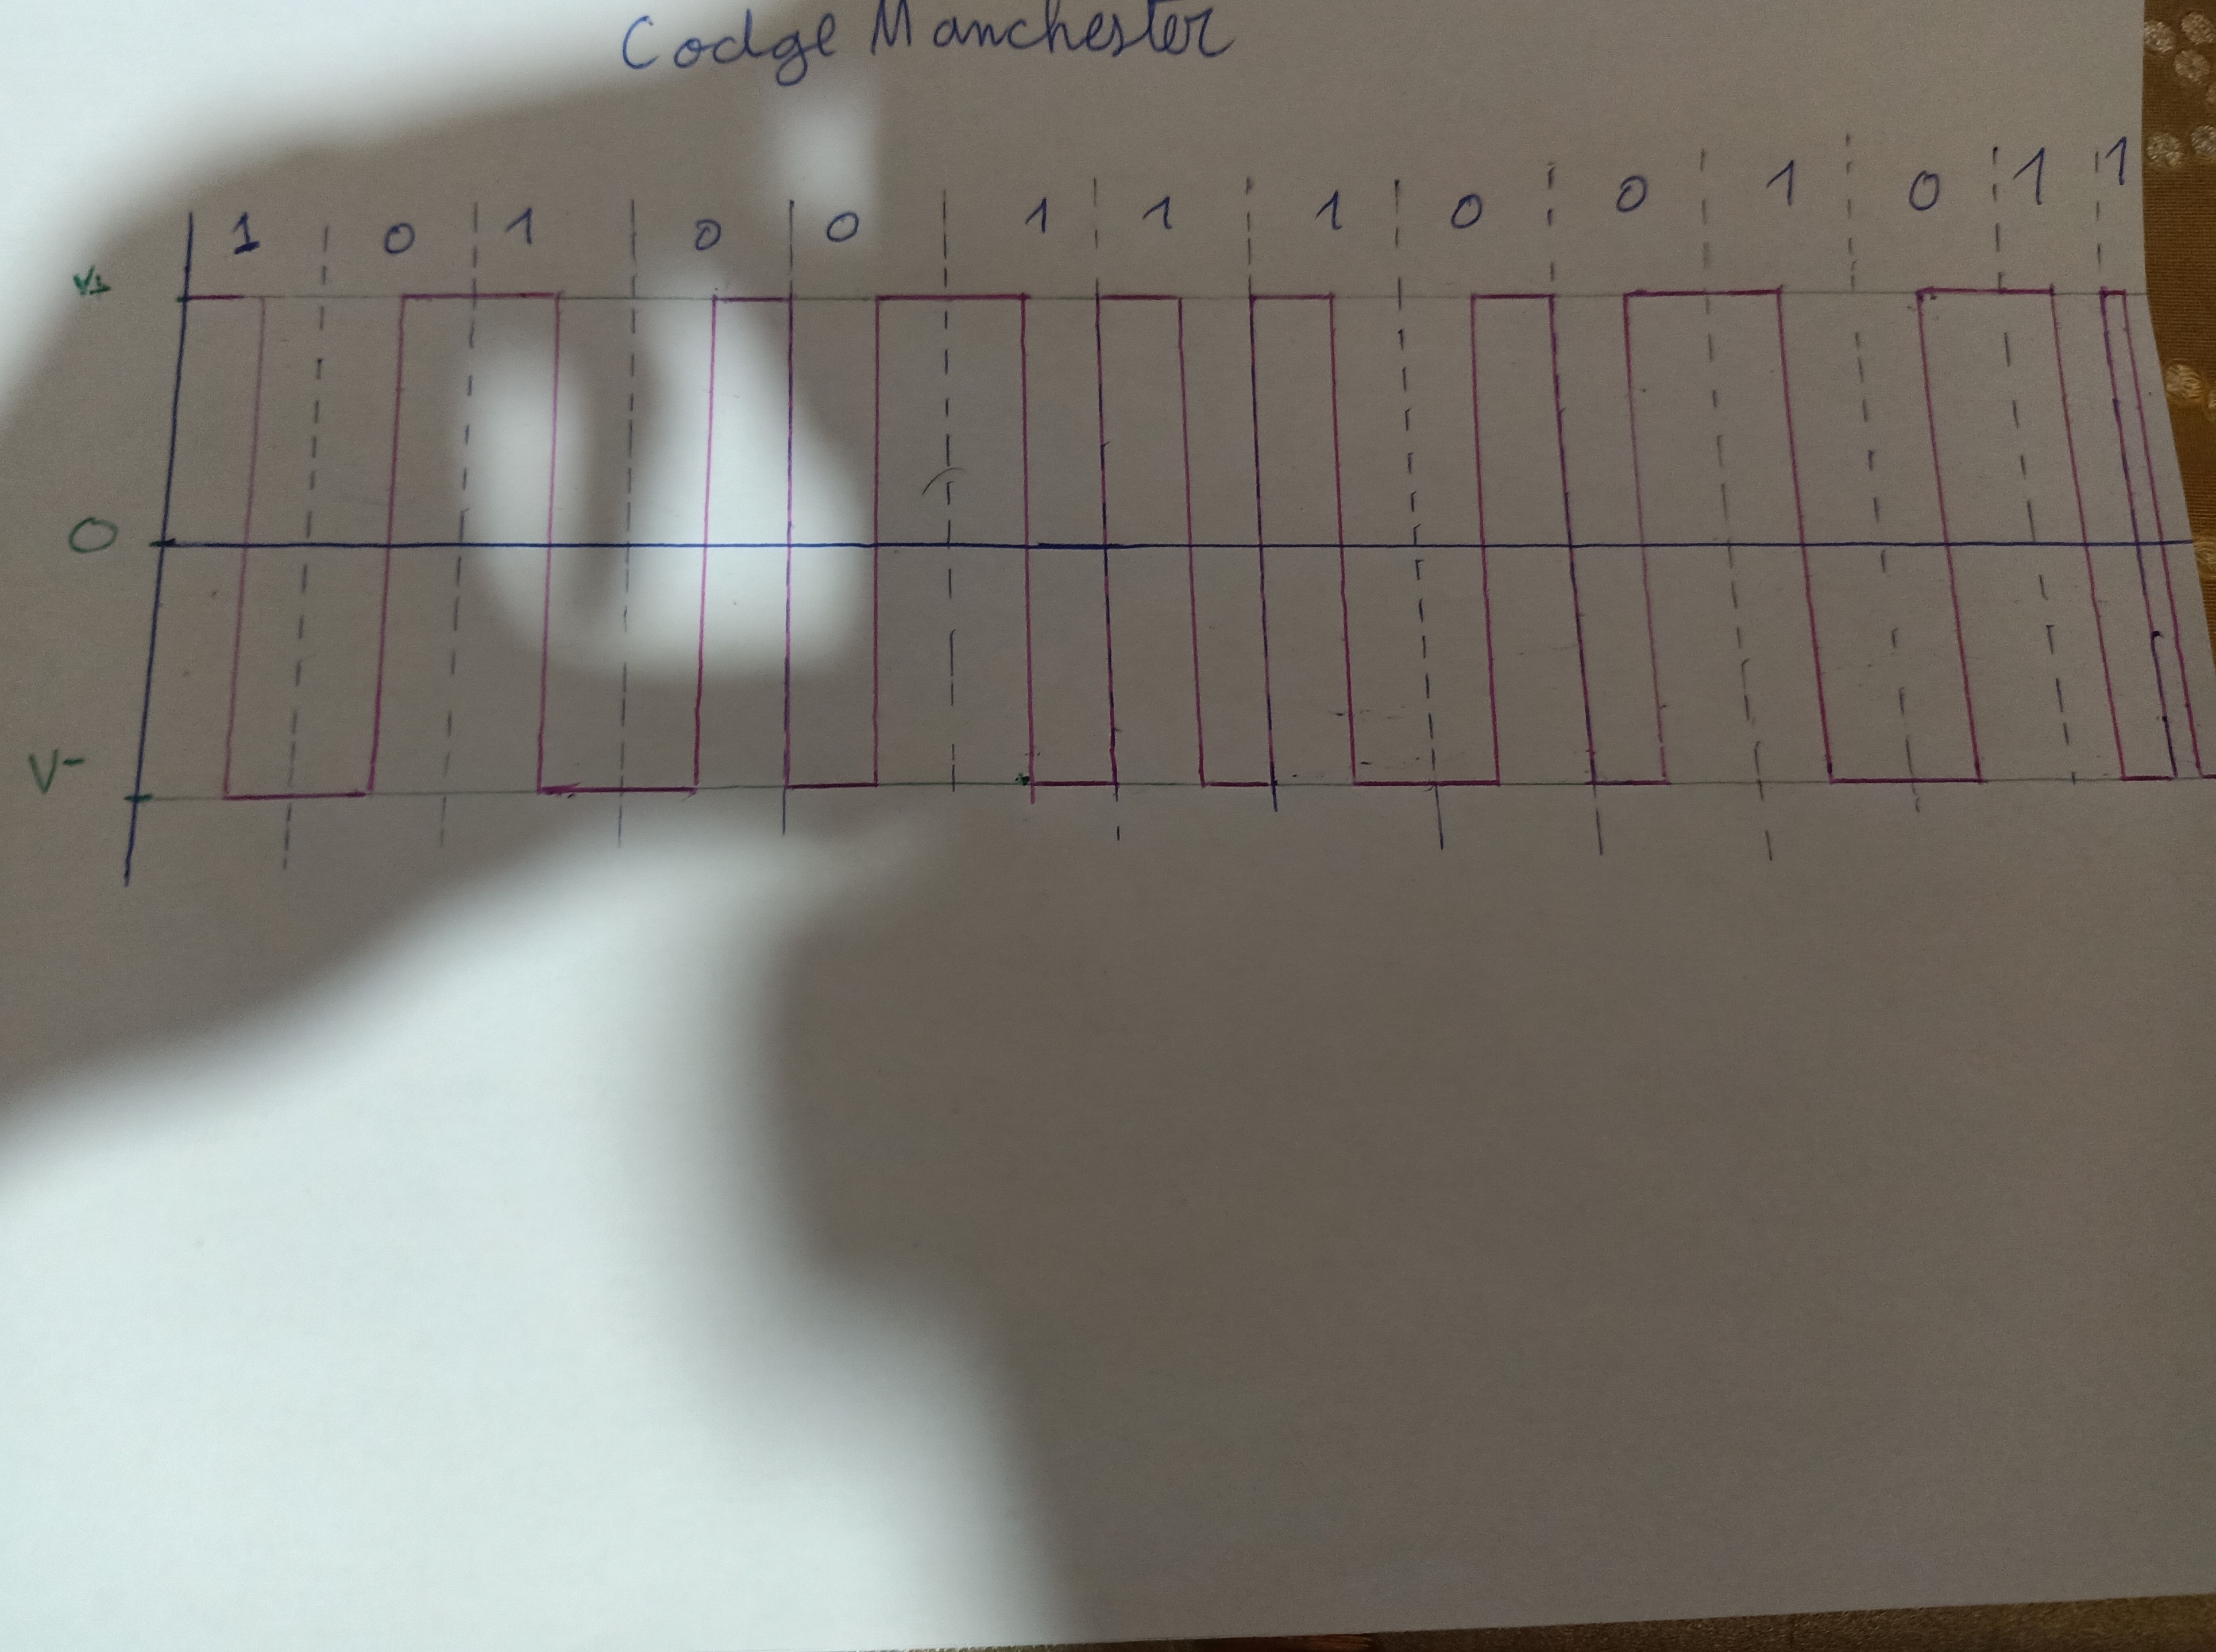 Codge Manchester
1 0 1 0 0 1 1 1 0 0 1 0 1 1
V+
0
V-